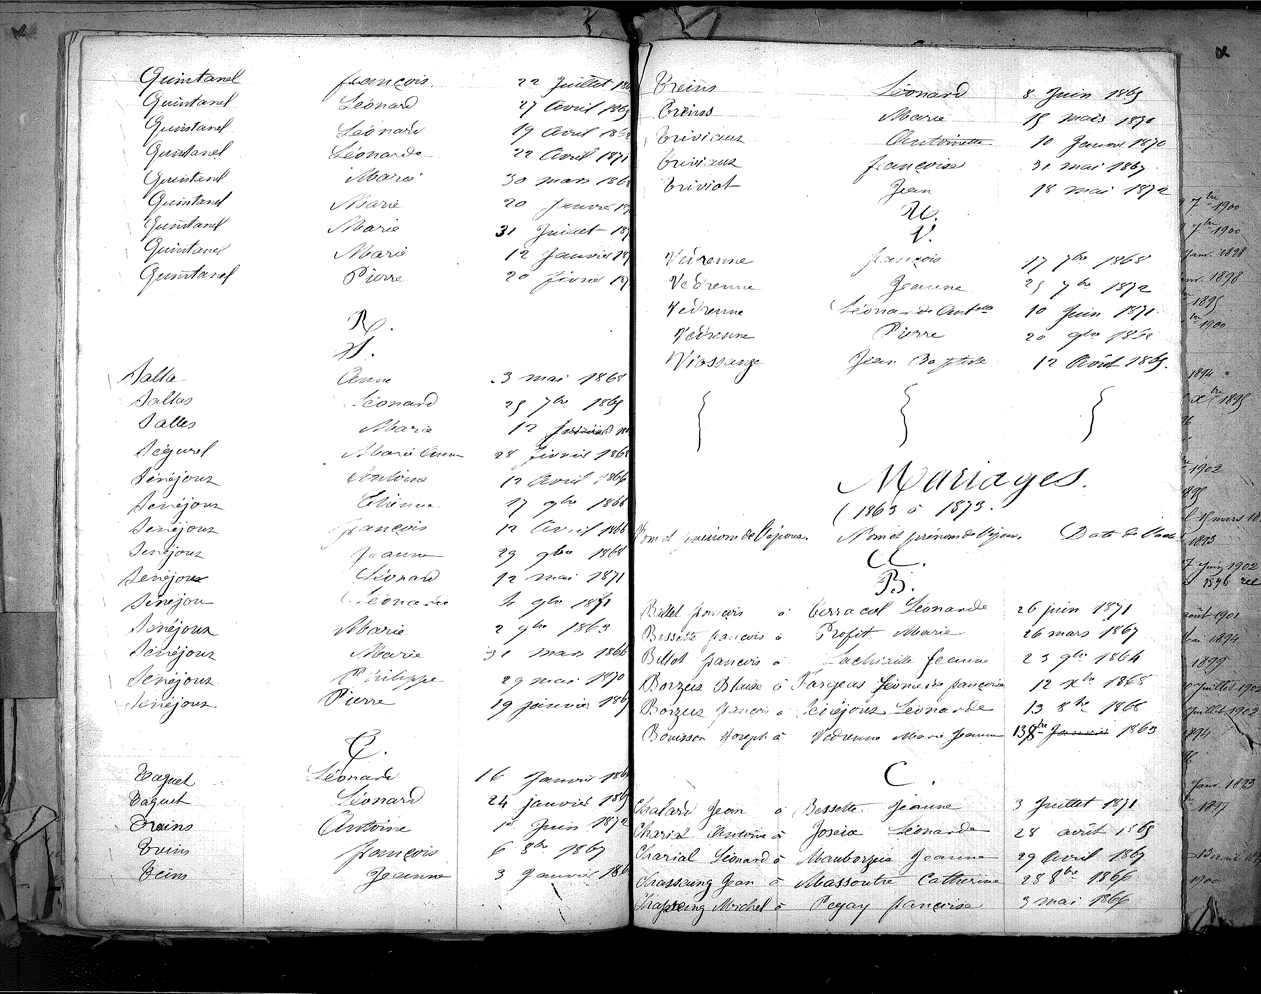 Quintanel François 22 Juillet
Quintanel Léonard 27 Avril 1865
Quintanel Léonard 19 Avril 1868
Quintanel Léonarde 22 Avril 1871
Quintanel Marie 30 mars 186
Quintanel Marie 20 Janvier
Quintanel Marie 31 Juillet
Quintanel Marie 12 Janvier
Quintanel Pierre 20 février
R.
S.
Salla Anne 3 mai 1868
Sallas Léonard 25 7bre 1865
Salles Marie 12
Ségurel Marie 28 février 1868
Sénéjoux Antoine 12 Avril 1866
Sénéjoux Etienne 17 9bre 1866
Sénéjoux François 12 Avril 1866
Sénéjoux Jeanne 29 9bre 1868
Sénéjoux Léonard 12 mai 1871
Sénéjou Léonarde 4 9bre 1871
Sénéjoux Marie 2 9bre 1863
Sénéjoux Marie 31 mars 1866
Sénéjoux Philippe 29 mai 1870
Sénéjoux Pierre 19 janvier 1867
T.
Taguet Léonard 16 Janvier 186
Taguet Léonard 24 janvier 186
Treins Antoine 1er Juin 1872
Treins François 6 8bre 1867
Teins Jeanne 3 Janvier 186
Treins Léonard 8 Juin 1865
Treins Marie 15 mars 1870
Triviaux Antoinette 10 Janvier 1870
Triviaux Françoise 31 mai 1867
Triviot Jean 18 mai 1872
U.
V.
Vedrenne François 17 7bre 1868
Vedrenne Jeanne 25 7bre 1872
Vedrenne Léonarde Antte 10 Juin 1871
Vedrenne Pierre 20 9bre 186
Viossange Jean Baptiste 12 Août 1865.
Mariages.
(1863 à 1873.
Nom et prénom de l'époux. Nom et prénom de l'épouse. Date de l'acte
A.
B.
Billet françois à Terracol Léonarde 26 juin 1871
Bessette françois à Profit Marie 26 mars 1867
Billot francois à Lachiaille Jeanne 23 9bre 1864
Borzeix Blaise à Fargeas Léonarde françoise 12 Xbre 1868
Borzeix françois à Sénéjoux Léonarde 13 8bre 1868
Bouisson Joseph à Vedrenne Marie Jeanne 13 8bre Janvier 1863
C.
Chalard Jean à Bessette Jeanne 3 Juillet 1871
Charial Antoine à Joseix Léonarde 28 août 1865
Charial Léonard à Mauborzeix Jeanne 29 Avril 1867
Chassaing Jean à Massoutre Catherine 28 8bre 1866
Chassaing Michel à Pegay françoise 3 mai 1866